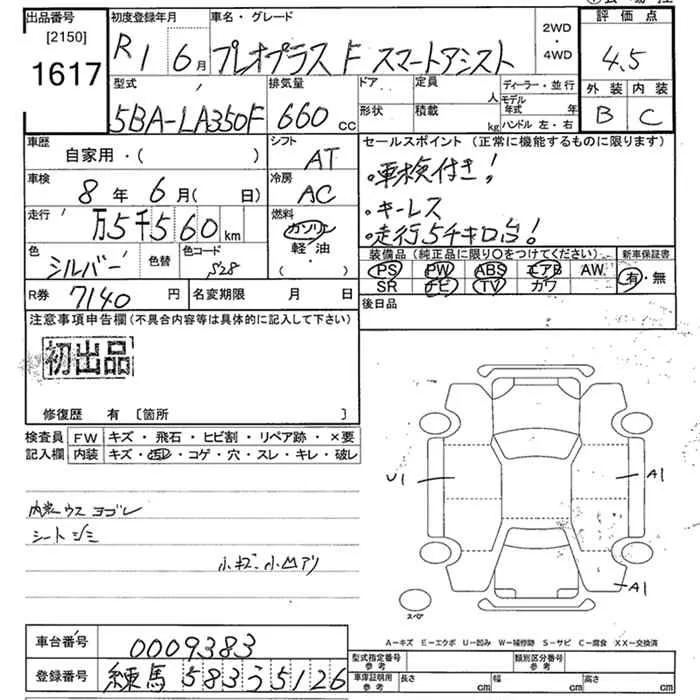 出品番号 初度登録年月 車名・グレード 評価点
[2150] R1 6月 プレオプラス F スマートアシスト 2WD・4WD 4.5
1617 型式 排気量 ドア 定員 人 ディーラー・並行 外装 内装
5BA-LA350F 660 CC 形状 積載 kg モデル年式 年 ハンドル 左・右 B C
車歴 シフト セールスポイント (正常に機能するものに限ります)
自家用・( ) AT
・車検付き!
車検 冷房
8年 6月( 日) AC
・キーレス
走行 燃料
万5千560km ガソリン
・走行5千キロ台!
軽油
・( )
色 色替 色コード
シルバー S28
装備品 (純正品に限り○をつけてください) 新車保証書
PS PW ABS エアB AW 有・無
SR ナビ TV カワ
R券 7140円 名変期限 月 日
後日品
注意事項申告欄(不具合内容等は具体的に記入して下さい)
初出品
修復歴 有 〔箇所 〕
検査員 FW キズ・飛石・ヒビ割・リペア跡・×要
記入欄 内装 キズ・汚れ・コゲ・穴・スレ・キレ・破レ
U1 A1
内装ウスヨゴレ
シートシミ
小キズ小凹アリ
A1
スペア
A-キズ E-エクボ U-凹み W-補修跡 S-サビ C-腐食 XX-交換済
車台番号 0009383
型式指定番号 参考 類別区分番号 参考
登録番号 練馬 583 う 5126
車庫証明用 参考 長さ cm 幅 cm 高さ cm